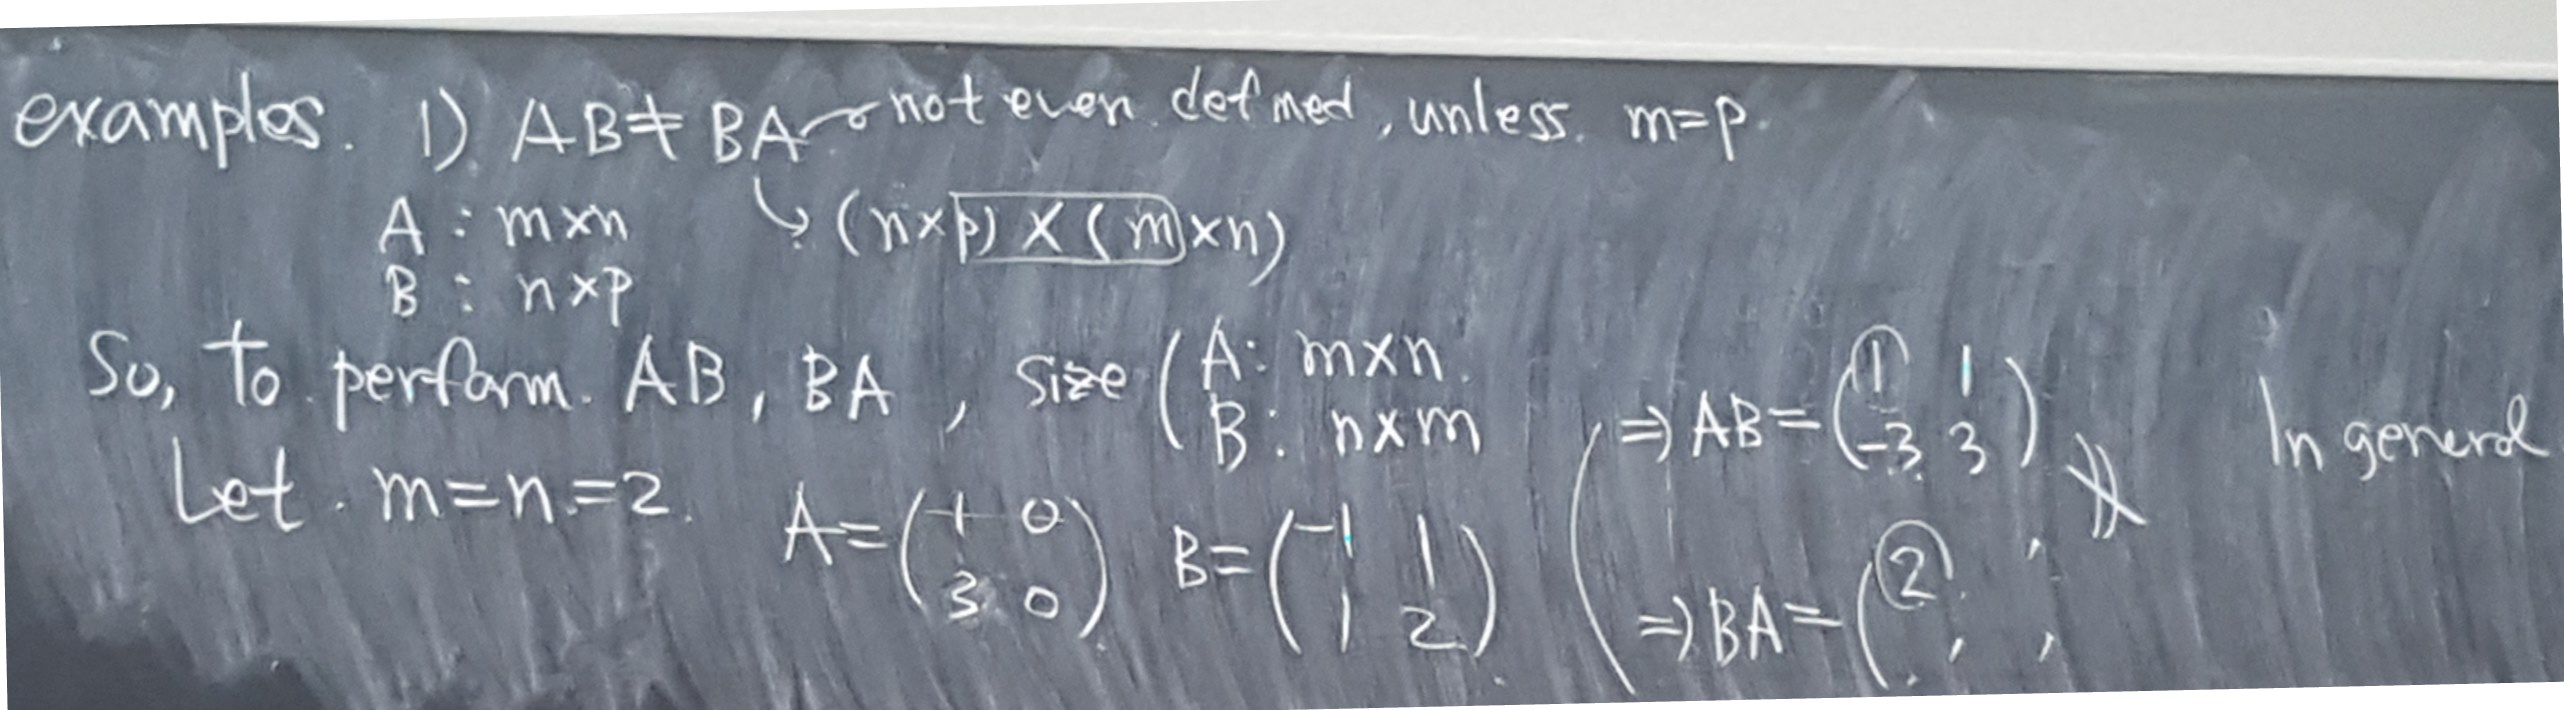 examples. 1) AB≠BA not even defined, unless. m=p.
A : m×n ↳ (n×p) × (m×n)
B : n×p
So, to perform. AB, BA, size (A: m×n. B: n×m
Let. m=n=2. A=(1 0 3 0) B=(-1 1 1 2)
⇒ AB=(1 1 -3 3) In general
⇒ BA=(2. , , .